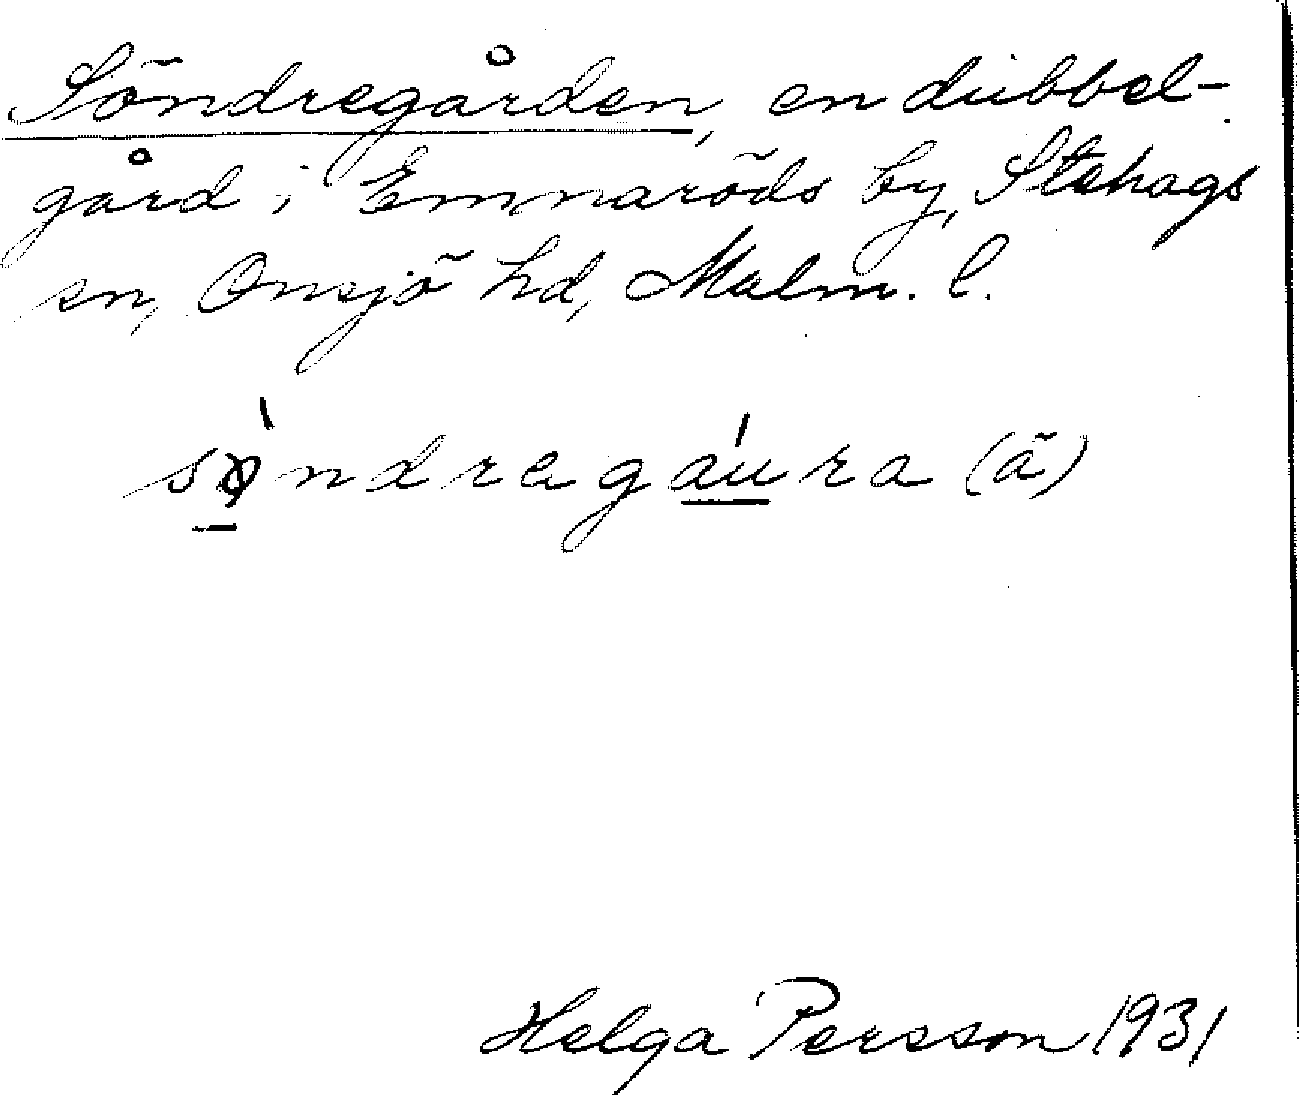 Söndregården, en dubbel-
gård i Emmaröds by, Stehags
sn, Onsjö hd, Malm. l.
sø̀ndragáura (ä)
Helga Persson 1931